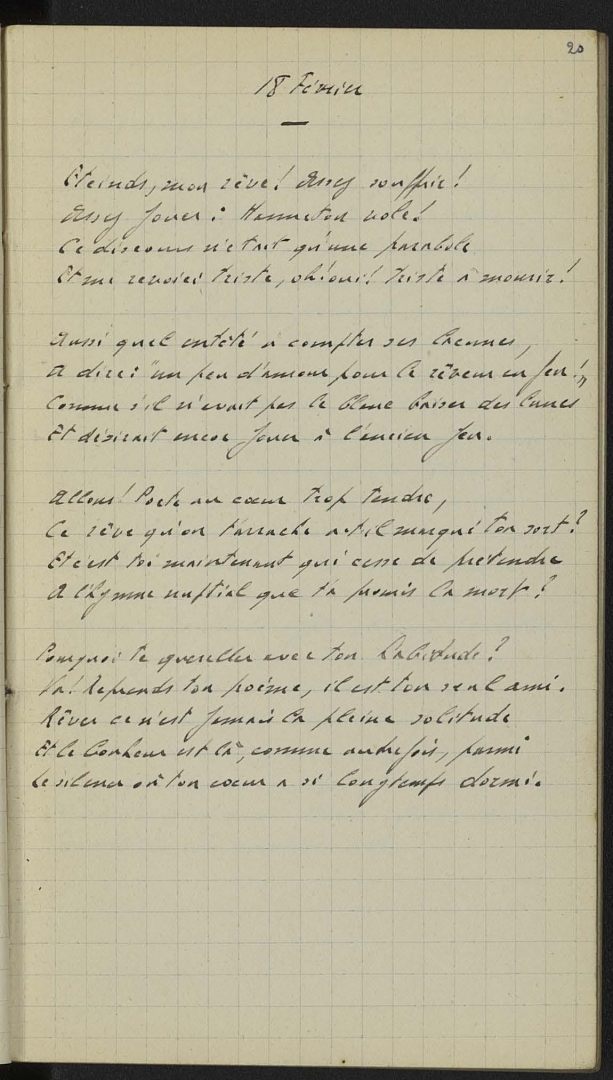 20
18 Février
Eteinds, mon rêve! Assez souffrir!
Assez jouer: Hanneton vole!
Ce discours n'était qu'une parabole
Et me revoici triste, oh! oui! triste à mourir!
Aussi quel entêté à compter ses larmes,
A dire: "un peu d'amour pour le rêveur en feu!"
Comme s'il n'avait pas le blanc baiser des lunes
Et désirait encor jouer à l'ancien jeu.
Allons! Poète au cœur trop tendre,
Ce rêve qu'on t'arrache a-t-il marqué ton sort?
Et c'est toi maintenant qui cesse de prétendre
A l'hymne nuptial que t'a promis la mort?
Pourquoi te quereller avec ton habitude?
Va! Reprends ton poème, il est ton seul ami.
Rêver ce n'est jamais la pleine solitude
Et le bonheur est là, comme autrefois, parmi
Le silence où ton cœur a si longtemps dormi.